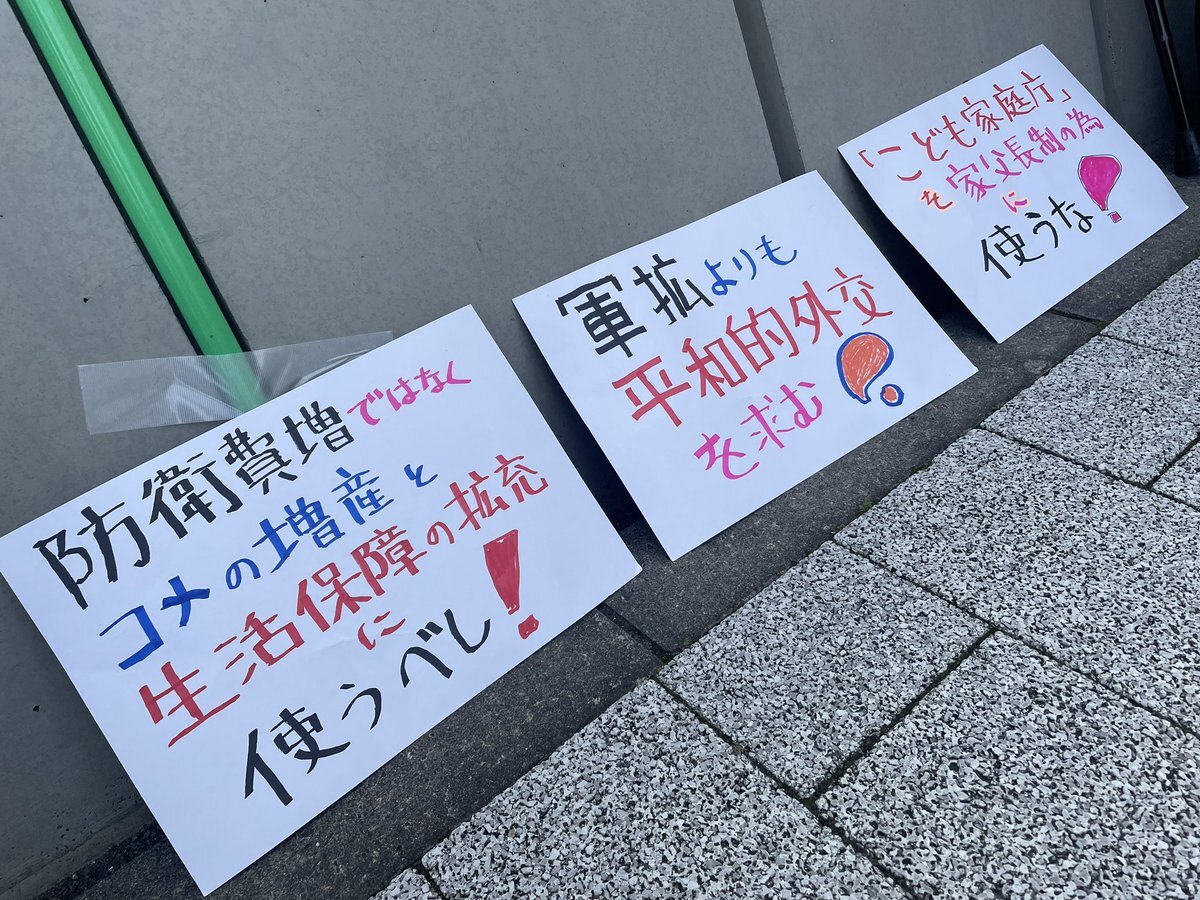 防衛費増ではなく
コメの増産と
生活保障の拡充
に
使うべし!
軍拡よりも
平和的外交
を求む
「こども家庭庁」
を家父長制の為
に
使うな!